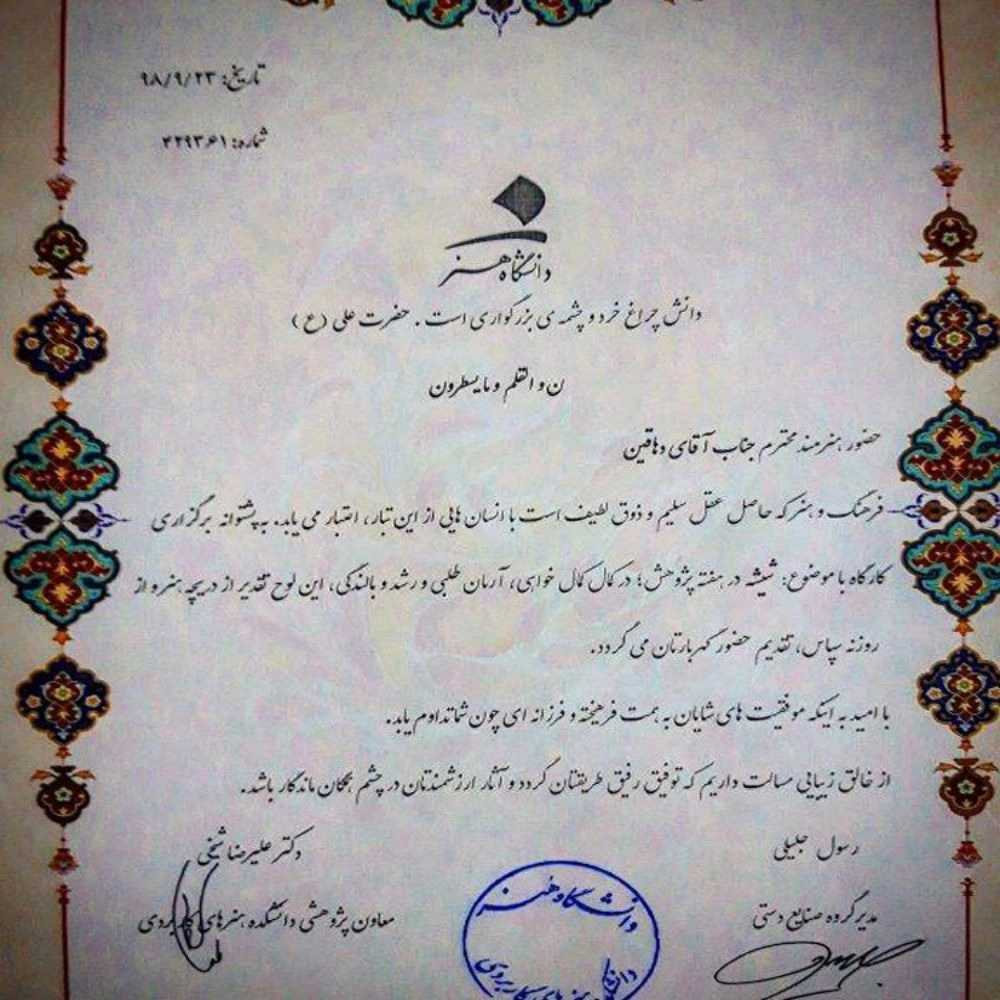 تاریخ: ۹۸/۹/۲۳
شماره: ۴۲۹۳۶۱
دانشگاه هنر
دانش چراغ خرد و چشمه ی بزرگواری است . حضرت علی (ع)
ن و القلم و ما یسطرون
حضور هنرمند محترم جناب آقای دهاقین
فرهنگ و هنر که حاصل عقل سلیم و ذوق لطیف است با انسان هایی از این تبار، اعتبار می یابد. به پشتوانه برگزاری
کارگاه با موضوع: شیشه در هفته پژوهش؛ در کمال کمال خواهی، آرمان طلبی و رشد و بالندگی، این لوح تقدیر از دریچه هنر و از
روزنه سپاس، تقدیم حضور گهربارتان می گردد.
با امید به اینکه موفقیت های شایان به همت فرهیخته و فرزانه ای چون شما تداوم یابد.
از خالق زیبایی مسالت داریم که توفیق رفیق طریقتان گردد و آثار ارزشمندتان در چشم همگان ماندگار باشد.
رسول جلیلی
دکتر علیرضا شیخی
مدیر گروه صنایع دستی
معاون پژوهشی دانشکده هنرهای کاربردی
دانشگاه هنر
دانشکده هنرهای کاربردی